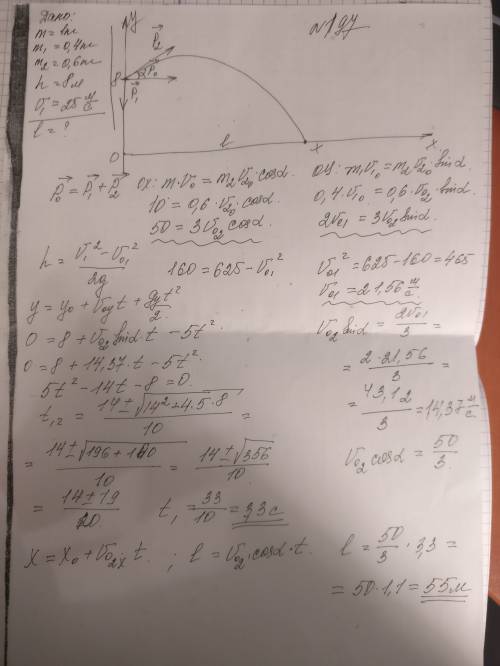 Дано:
m = 1кг
m₁ = 0,4кг
m₂ = 0,6кг
h = 8м
v₁ = 25 м/с
l = ?
y
8
P₂
α
P₀
P₁
l
0
x
x
P₀ = P₁ + P₂
ox: m·v₀ = m₂v₂₀·cosα.
10 = 0,6·v₂₀·cosα.
50 = 3v₀₂cosα
oy: m₁v₁₀ = m₂v₂₀·sinα.
0,4·v₁₀ = 0,6·v₀₂·sinα.
2v₀₁ = 3v₀₂sinα.
h = (v₁² - v₀₁²)/2g
160 = 625 - v₀₁²
v₀₁² = 625 - 160 = 465
v₀₁ = 21,56 м/с.
y = y₀ + v₀yt + gyt²/2
0 = 8 + v₀₂sinα·t - 5t²
0 = 8 + 14,37·t - 5t².
5t² - 14t - 8 = 0.
t₁,₂ = (14 ± √(14² + 4·5·8))/10 =
= (14 ± √(196 + 160))/10 = (14 ± √356)/10
= (14 ± 19)/20.
t₁ = 33/10 = 3,3с
v₀₂sinα = 2v₀₁/3 =
= 2·21,56/3 =
= 43,12/3 = 14,37 м/с.
v₀₂cosα = 50/3.
x = x₀ + v₀₂ₓt. ; l = v₀₂·cosα·t.
l = 50/3 · 3,3 =
= 50·1,1 = 55м